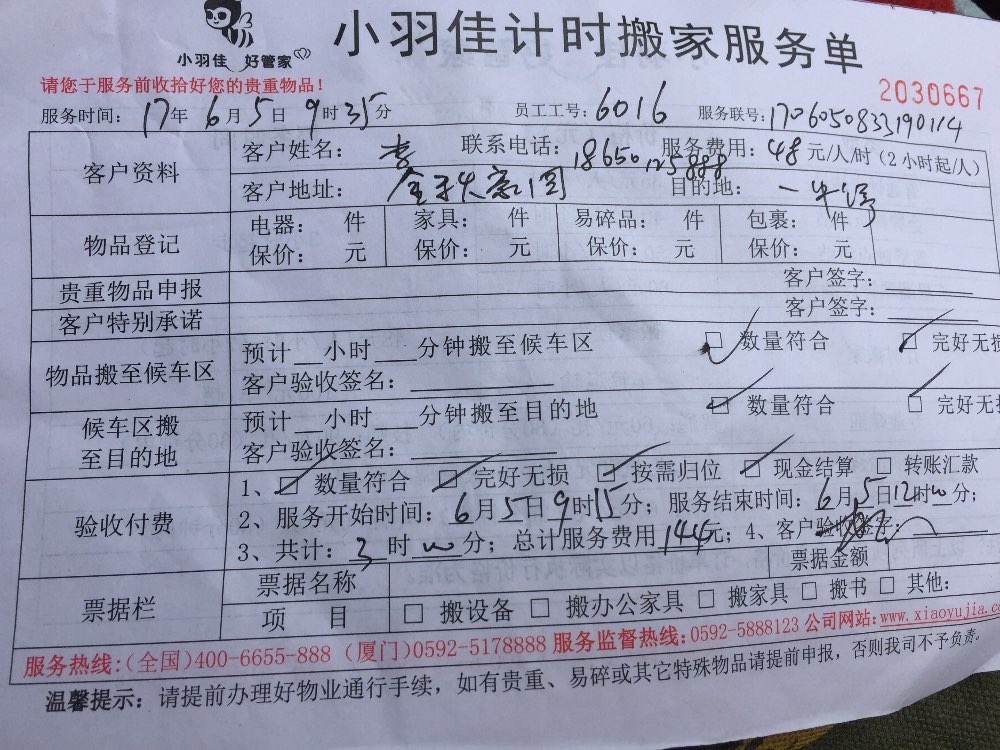 小羽佳 好管家
小羽佳计时搬家服务单
请您于服务前收拾好您的贵重物品！
2030667
服务时间：17年6月5日9时35分 员工工号：6016 服务联号：1706050833190114
客户资料 客户姓名：李 联系电话：18650125888 服务费用：48元/人/时（2小时起/人）
客户地址： 目的地：
物品登记 电器： 件 家具： 件 易碎品： 件 包裹： 件
保价： 元 保价： 元 保价： 元 保价： 元
贵重物品申报 客户签字：
客户特别承诺 客户签字：
物品搬至候车区 预计__小时___分钟搬至候车区 □ 数量符合 □ 完好无损
客户验收签名：
候车区搬至目的地 预计__小时___分钟搬至目的地 □ 数量符合 □ 完好无
客户验收签名：
验收付费 1、□ 数量符合 □ 完好无损 □ 按需归位 □ 现金结算 □ 转账汇款
2、服务开始时间：6月5日9时15分；服务结束时间：6月5日12时00分；
3、共计：3时00分；总计服务费用144元；4、客户验收签字：
票据栏 票据名称 票据金额
项 目 □ 搬设备 □ 搬办公家具 □ 搬家具 □ 搬书 □ 其他：
服务热线：(全国)400-6655-888 (厦门)0592-5178888 服务监督热线：0592-5888123 公司网站：www.xiaoyujia.com
温馨提示：请提前办理好物业通行手续，如有贵重、易碎或其它特殊物品请提前申报，否则我司不予负责。